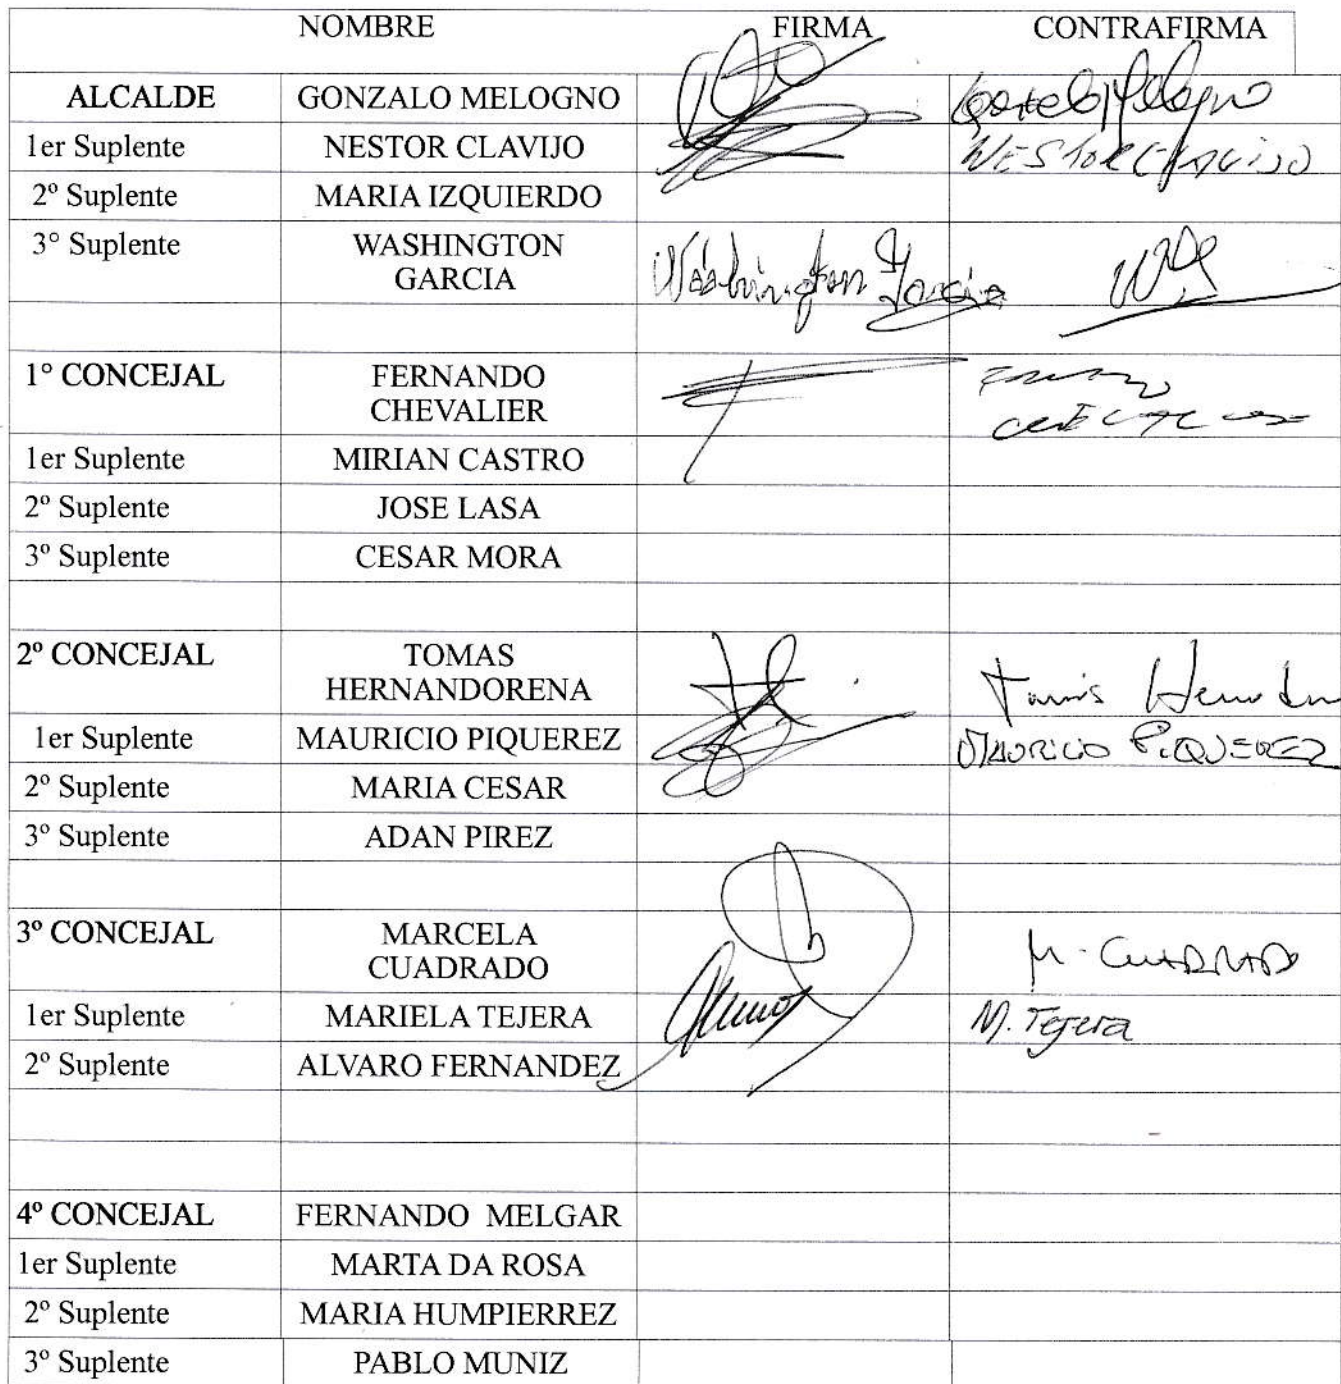 NOMBRE FIRMA CONTRAFIRMA
ALCALDE GONZALO MELOGNO Gonzalo Melogno
1er Suplente NESTOR CLAVIJO NESTOR CLAVIJO
2º Suplente MARIA IZQUIERDO
3° Suplente WASHINGTON
GARCIA Washington Garcia
1° CONCEJAL FERNANDO
CHEVALIER
1er Suplente MIRIAN CASTRO
2º Suplente JOSE LASA
3º Suplente CESAR MORA
2º CONCEJAL TOMAS
HERNANDORENA Tomás
1er Suplente MAURICIO PIQUEREZ MAURICIO PIQUEREZ
2º Suplente MARIA CESAR
3º Suplente ADAN PIREZ
3º CONCEJAL MARCELA
CUADRADO M. CUADRADO
1er Suplente MARIELA TEJERA M. Tejera
2º Suplente ALVARO FERNANDEZ
4º CONCEJAL FERNANDO MELGAR
1er Suplente MARTA DA ROSA
2º Suplente MARIA HUMPIERREZ
3º Suplente PABLO MUNIZ